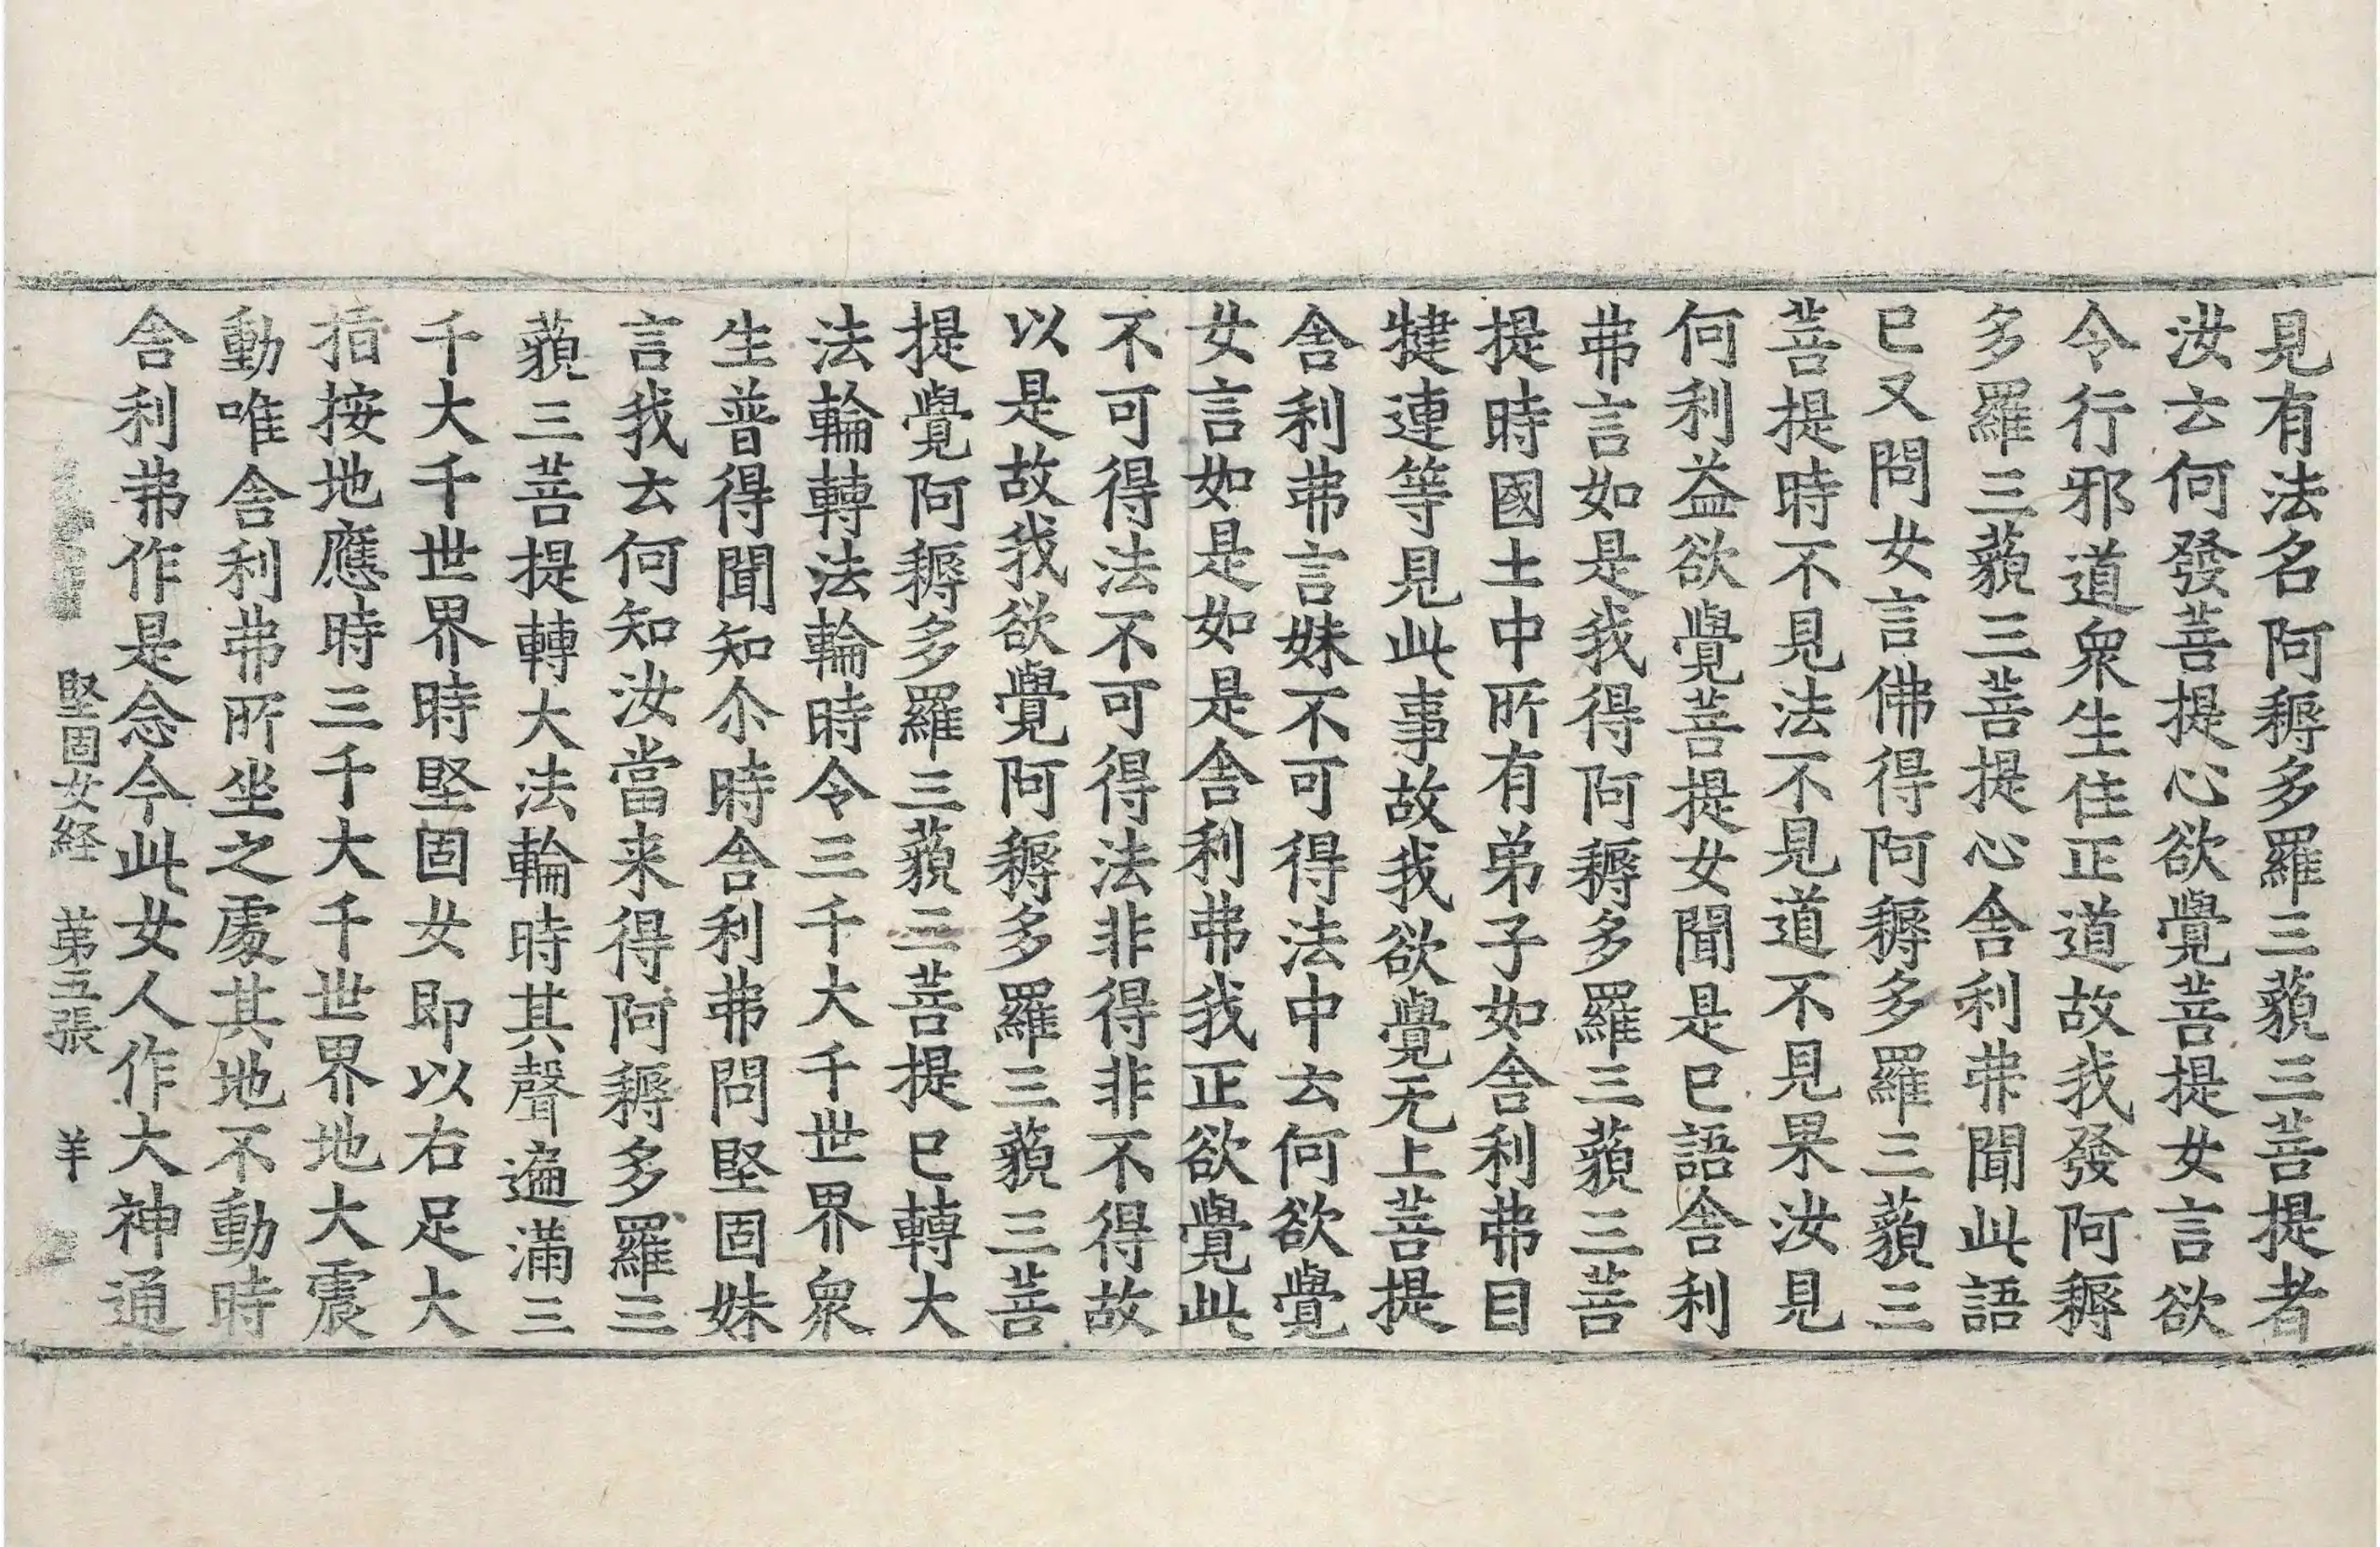 見有法名阿耨多羅三藐三菩提者
汝云何發菩提心欲覺菩提女言欲
令行邪道衆生住正道故我發阿耨
多羅三藐三菩提心舎利弗聞此語
已又問女言佛得阿耨多羅三藐三
菩提時不見法不見道不見果汝見
何利益欲覺菩提女聞是已語舎利
弗言如是我得阿耨多羅三藐三菩
提時國土中所有弟子如舎利弗目
揵連等見此事故我欲覺无上菩提
舎利弗言妹不可得法中云何欲覺
女言如是如是舎利弗我正欲覺此
不可得法不可得法非得非不得故
以是故我欲覺阿耨多羅三藐三菩
提覺阿耨多羅三藐三菩提已轉大
法輪轉法輪時令三千大千世界衆
生普得聞知尒時舎利弗問堅固妹
言我云何知汝當来得阿耨多羅三
藐三菩提轉大法輪時其聲遍滿三
千大千世界時堅固女即以右足大
指按地應時三千大千世界地大震
動唯舎利弗所坐之處其地不動時
舎利弗作是念今此女人作大神通
堅固女経 苐五張 羊